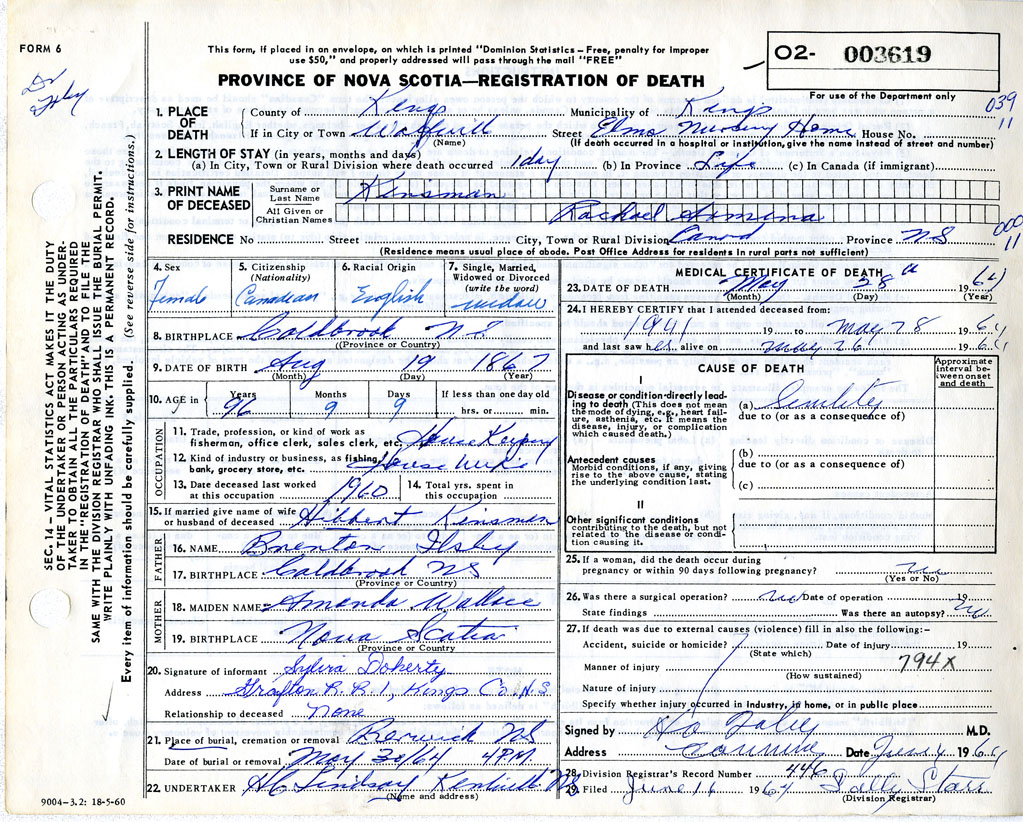 FORM 6
This form, if placed in an envelope, on which is printed "Dominion Statistics – Free, penalty for improper
use $50," and properly addressed will pass through the mail "FREE"
PROVINCE OF NOVA SCOTIA—REGISTRATION OF DEATH
O2- 003619
For use of the Department only
039
11
Dr
SEC. 14 – VITAL STATISTICS ACT MAKES IT THE DUTY
OF THE UNDERTAKER OR PERSON ACTING AS UNDER-
TAKER TO OBTAIN ALL THE PARTICULARS REQUIRED
IN THE "REGISTRATION OF DEATH" AND TO FILE THE
SAME WITH THE DIVISION REGISTRAR WHO SHALL ISSUE THE BURIAL PERMIT.
WRITE PLAINLY WITH UNFADING INK. THIS IS A PERMANENT RECORD.
Every item of information should be carefully supplied. (See reverse side for instructions.)
1. PLACE OF DEATH
County of Kings Municipality of Kings
If in City or Town Wolfvill Street Elms Nursery Home House No.
(Name) (If death occurred in a hospital or institution, give the name instead of street and number)
2. LENGTH OF STAY (in years, months and days)
(a) In City, Town or Rural Division where death occurred 1 day (b) In Province Life (c) In Canada (if immigrant)
3. PRINT NAME OF DECEASED
Surname or Last Name Kinsman
All Given or Christian Names Rachael
000
11
RESIDENCE No Street City, Town or Rural Division Canard Province NS
(Residence means usual place of abode. Post Office Address for residents in rural parts not sufficient)
4. Sex Female
5. Citizenship (Nationality) Canadian
6. Racial Origin English
7. Single, Married, Widowed or Divorced (write the word) widow
8. BIRTHPLACE Coldbrook N.S.
(Province or Country)
9. DATE OF BIRTH Aug 19 1867
(Month) (Day) (Year)
10. AGE in Years 96 Months 9 Days 9 If less than one day old hrs. or min.
OCCUPATION
11. Trade, profession, or kind of work as
fisherman, office clerk, sales clerk, etc. House Keeping
12. Kind of industry or business, as fishing,
bank, grocery store, etc. House
13. Date deceased last worked at this occupation 1960
14. Total yrs. spent in this occupation
15. If married give name of wife
or husband of deceased Hibbert Kinsman
FATHER
16. NAME Brenton Ilsley
17. BIRTHPLACE Coldbrook NS
(Province or Country)
MOTHER
18. MAIDEN NAME Amanda Wallace
19. BIRTHPLACE Nova Scotia
(Province or Country)
20. Signature of informant Sylvia Doherty
Address Grafton R.R. 1, Kings Co. N.S.
Relationship to deceased none
21. Place of burial, cremation or removal Berwick NS
Date of burial or removal May 30/64 4 P.M.
22. UNDERTAKER HC Lindsay Kentville NS
(Name and address)
9004–3.2: 18-5-60
MEDICAL CERTIFICATE OF DEATH
23. DATE OF DEATH May 28 1964
(Month) (Day) (Year)
24. I HEREBY CERTIFY that I attended deceased from:
1941 19 to May 28 1964
and last saw her alive on May 26 1964
CAUSE OF DEATH
Approximate interval between onset and death
I
Disease or condition directly leading
to death (This does not mean
the mode of dying, e.g., heart failure,
asthenia, etc. It means the
disease, injury, or complication
which caused death.)
(a) Senility
due to (or as a consequence of)
Antecedent causes
Morbid conditions, if any, giving
rise to the above cause, stating
the underlying condition last.
(b)
due to (or as a consequence of)
(c)
II
Other significant conditions
contributing to the death, but not
related to the disease or condition
causing it.
25. If a woman, did the death occur during
pregnancy or within 90 days following pregnancy? no
(Yes or No)
26. Was there a surgical operation? no Date of operation 19
State findings Was there an autopsy? no
27. If death was due to external causes (violence) fill in also the following:–
Accident, suicide or homicide? Date of injury 19
(State which)
Manner of injury 794X
(How sustained)
Nature of injury
Specify whether injury occurred in Industry, in home, or in public place
Signed by M.D.
Address Canning Date June 4 1964
28. Division Registrar's Record Number 446
29. Filed June 16 1964 Sally Starr
(Division Registrar)